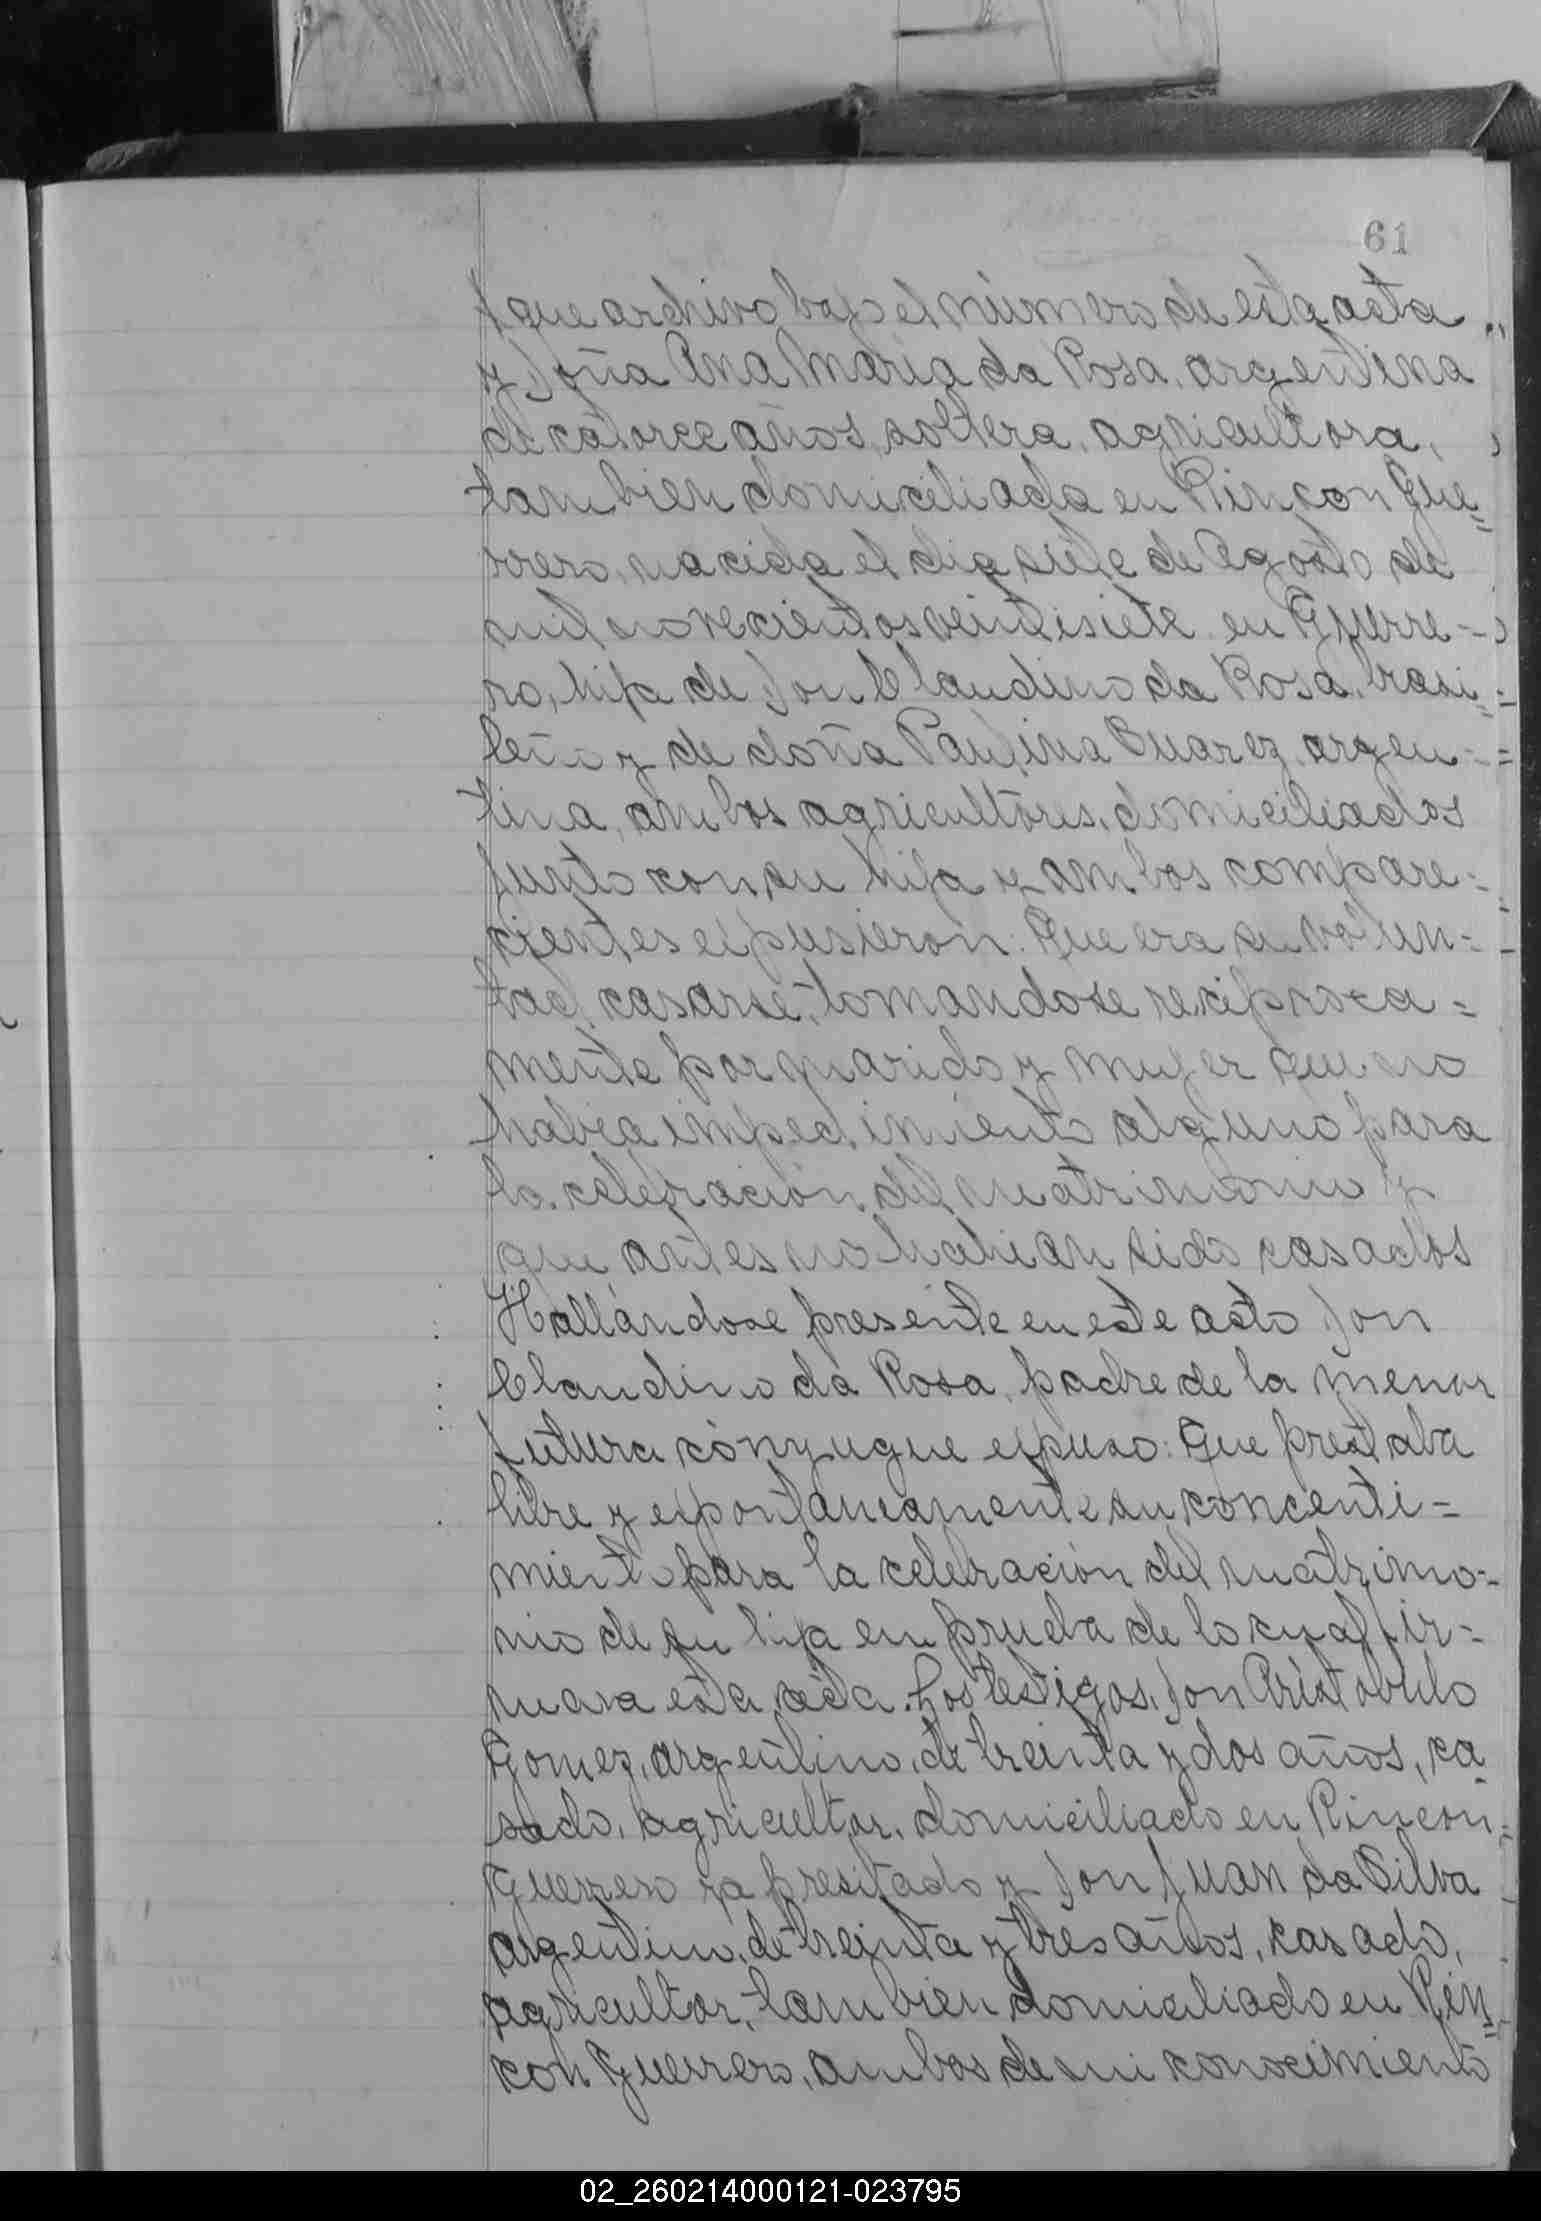 61
que archivo bajo el número de esta acta
y Doña Ana Maria da Rosa, argentina
de catorce años, soltera, agricultora,
tambien domiciliada en Rincon Gue=
rrero, nacida el dia siete de Agosto de
mil novecientos veintisiete en Guerre-
ro, hija de Don Claudino da Rosa, brasi=
leño y de doña Paulina Suarez, argen-
tina, ambos agricultores, domiciliados
junto con su hija y ambos compare-
cientes expusieron: Que era su volun=
tad casarse, tomandose reciproca=
mente por marido y mujer que no
habia impedimiento alguno para
la celebración del matrimonio y
que antes no habian sido casados
Hallándose presente en este acto Don
Claudino da Rosa, padre de la menor
futura cónyugue expuso: Que prestaba
libre y expontaneamente su concenti=
miento para la celebración del matrimo-
nio de su hija en prueba de lo cual fir=
mara esta acta. Los testigos, Don Aristobulo
Gomez, argentino, de treinta y dos años, ca
sado, agricultor, domiciliado en Rincon
Guerrero ya presitado y Don Juan da Silva
argentino, de treinta y tres años, casado,
agricultor, tambien domiciliado en Rin=
con Guerrero, ambos de mi conocimiento
02_260214000121-023795